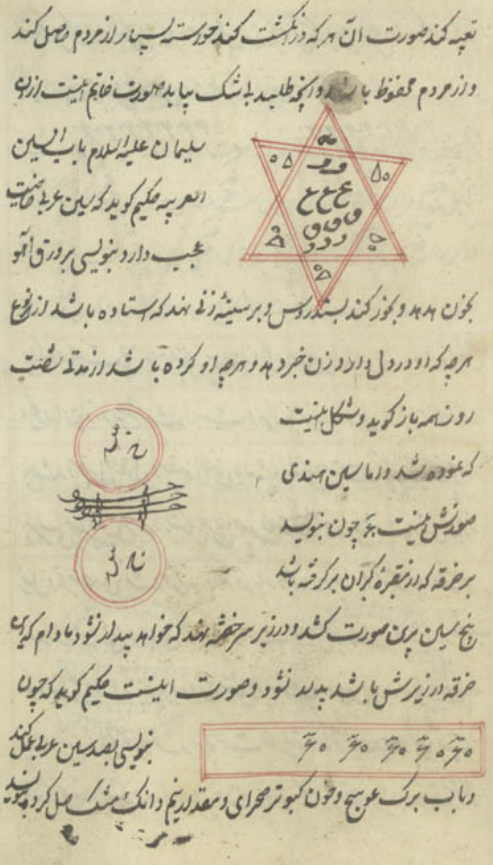 تعبیه کند صورت آن هر که در انگشت کند خواسته بسیار از مردم حاصل کند
و از مردم محفوظ باشد و آنچه طلبد بی شک بیابد صورت خاتم اینست از ان
سلیمان علیه السلام باب السین
العربیه حکیم کوید که سین عربی خاصیت
عجب دارد بنویسی بر ورق آهو
بخون هدهد و بخور کند بسندروس و بر سینه زنی نهد که استاده باشد از نوع
هر چه که او در دل دارد زن خبر دهد و هر چه او کرده باشد از مدت شصت
روز همه باز کوید و شکل اینست
که نموده شد و اما سین هندی
صورتش اینست چون بنویسد
بر خرقه که از مقبره کران بر کرفته باشد
پنج سین برین صورت کشد و در زیر سر خفته نهد که خواهد بیدار نشود مادام که این
خرقه در زیرش باشد بیدار نشود و صورت اینست حکیم کوید که چون
بنویسی بصد سین عربی عمل کند
و باب برک عوسج و خون کبوتر صحرای و مقدار نیم دانک مشک حل کرده